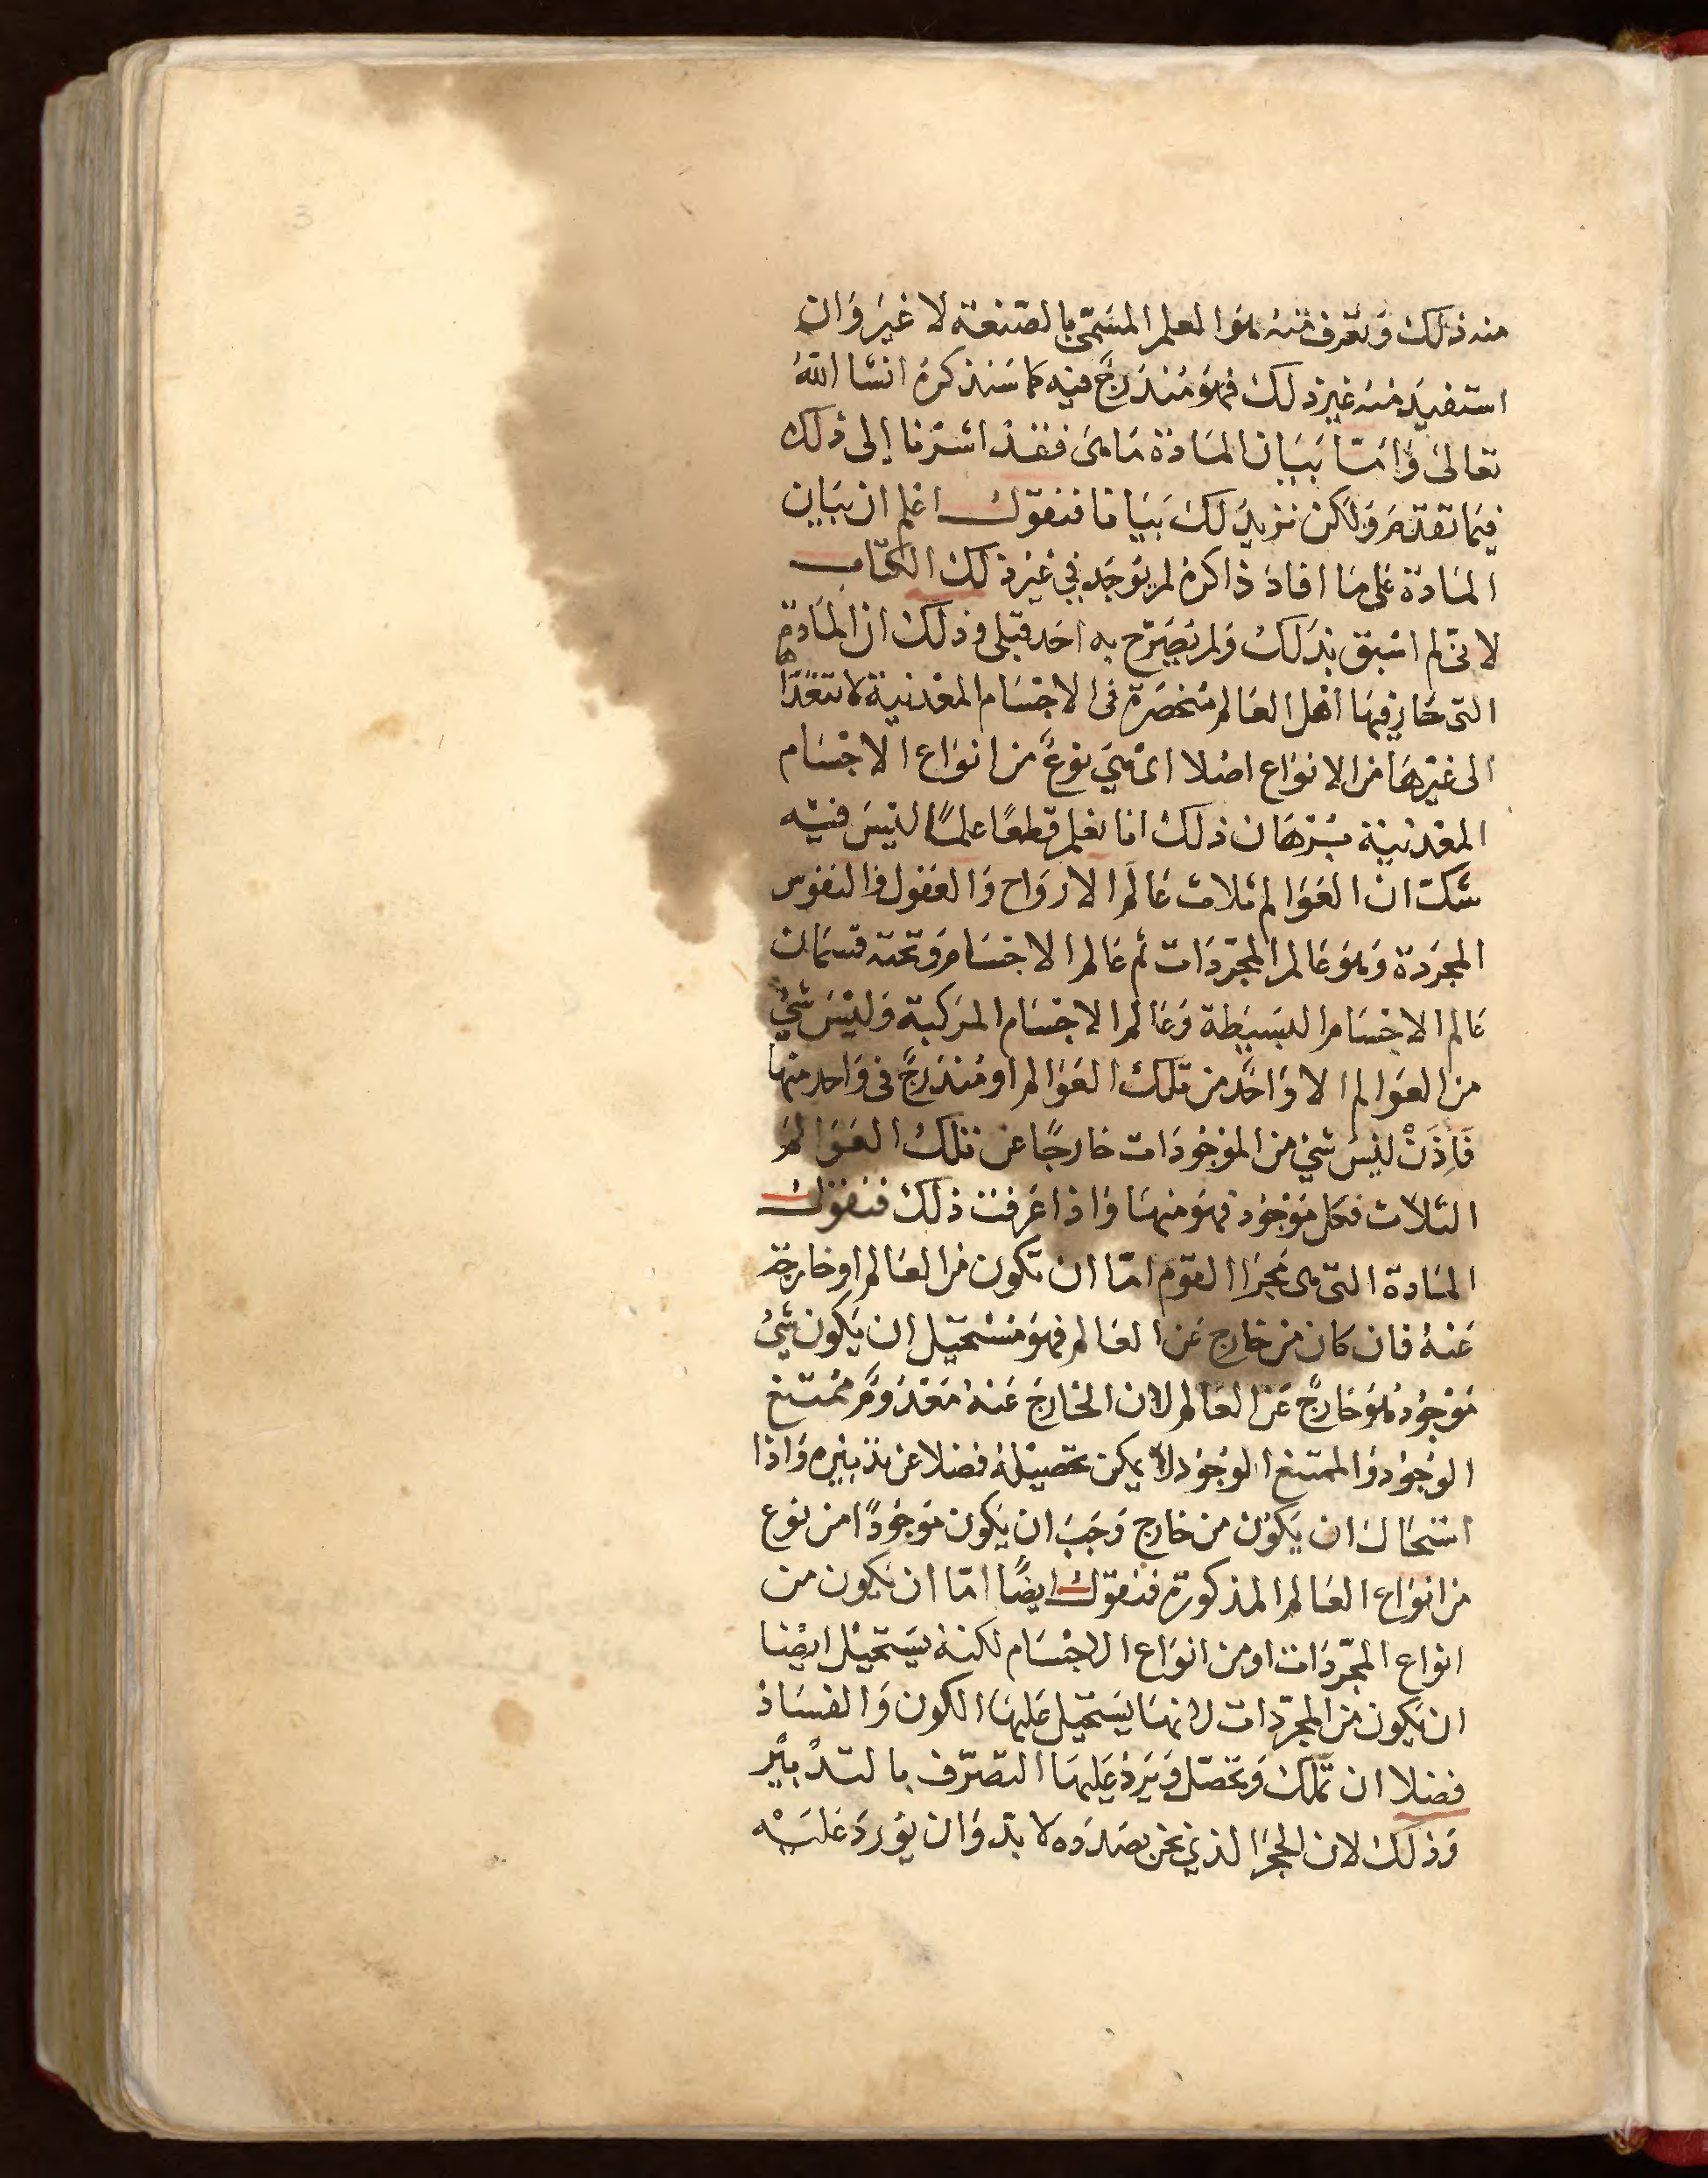 منه ذلك وتعرف منه هو العلم المسَمّى بالصّنعة لا غير وَان
استفيد منه غير ذلك فهوَ مُندَرجٌ فيه كما سَنذكرهُ انشا اللهُ
تعالىٰ وَامّا بيَان المَادة مَا هى فقد اشرنا إلى ذلك
فيما تقدّم وَلكن نزيدُ لكَ بيَانا فنقوّل اعلم ان بيَان
المَادة على مَا افادَ ذاكرهُ لم يوُجَد في غير ذلك الكتاب
لانى لم اسْبق بذلكَ وَلم يُصَرّح به احَد قبلى وذلك ان المَادة
التى حَار فيهَا اهل العَالم مُنحَصرَة فى الاجسَام المعدنية لا تتعدّاهَا
الى غيرهَا من الانوَاع اصْلا اى هيَ نوعٌ من انوَاع الاجسَام
المعدنية برْهَان ذلك انا نعْلم قطعًا علمًا ليْسَ فيْه
شك ان العَوَالم ثلاث عَالم الارواح وَالعقول وَالنفوس
المجرَدة وَهوَ عَالم المجرّدَات ثم عَالم الاجسَام وَتحته قسمَان
عَالم الاجسَام البسَيطة وَعَالم الاجسَام المرَكبة وَليْسَ شيْ
من العوَالم الا وَاحدٌ من تلكَ العوَالم او مُندَرجٌ فى وَاحد منها
فَاِذَنْ ليْسَ شيْ من الموْجُودَات خارجًا عن تلكَ العَوَالم
الثلاث فكل مَوْجُود فهوَ منهَا وَاذا عَرفت ذلكَ فنقوّل
المَادة التى هى حَجرُ القوم امّا ان تكون من العَالم او خارجة
عَنهُ فان كان من خارج عَن العَالم فهوَ مُسْتحيْل ان يَكون شَيْ
مَوْجُود هُوَ خارجٌ عَن العَالم لان الخارجَ عَنهُ مَعْدُومٌ ممُتنع
الوجُود وَالممتنع الوجُود لا يمكن تحصيْلهُ فضلا عن تدبيره وَاذا
اسْتحَال ان يَكوْن من خارج وَجَبَ ان يكون مَوجُودًا من نوع
من انوَاع العَالم المذكورة فنقوّل ايضًا امّا ان يكون من
انواع المجرّدَات او من انوَاع الاجسَام لكنهُ يسَتحيْل ايضا
ان يَكون من المجرّدات لانهَا يسَتحيل عَليهَا الكون وَالفسَادُ
فضلا ان تملك وَتحصّل وَيَردْ عَليهَا التصَرّف بالتدْبيْر
وَذلك لان الحجرَ الذي نحن بصَدَده لا بدّ وَان يوُردَ عَليْه